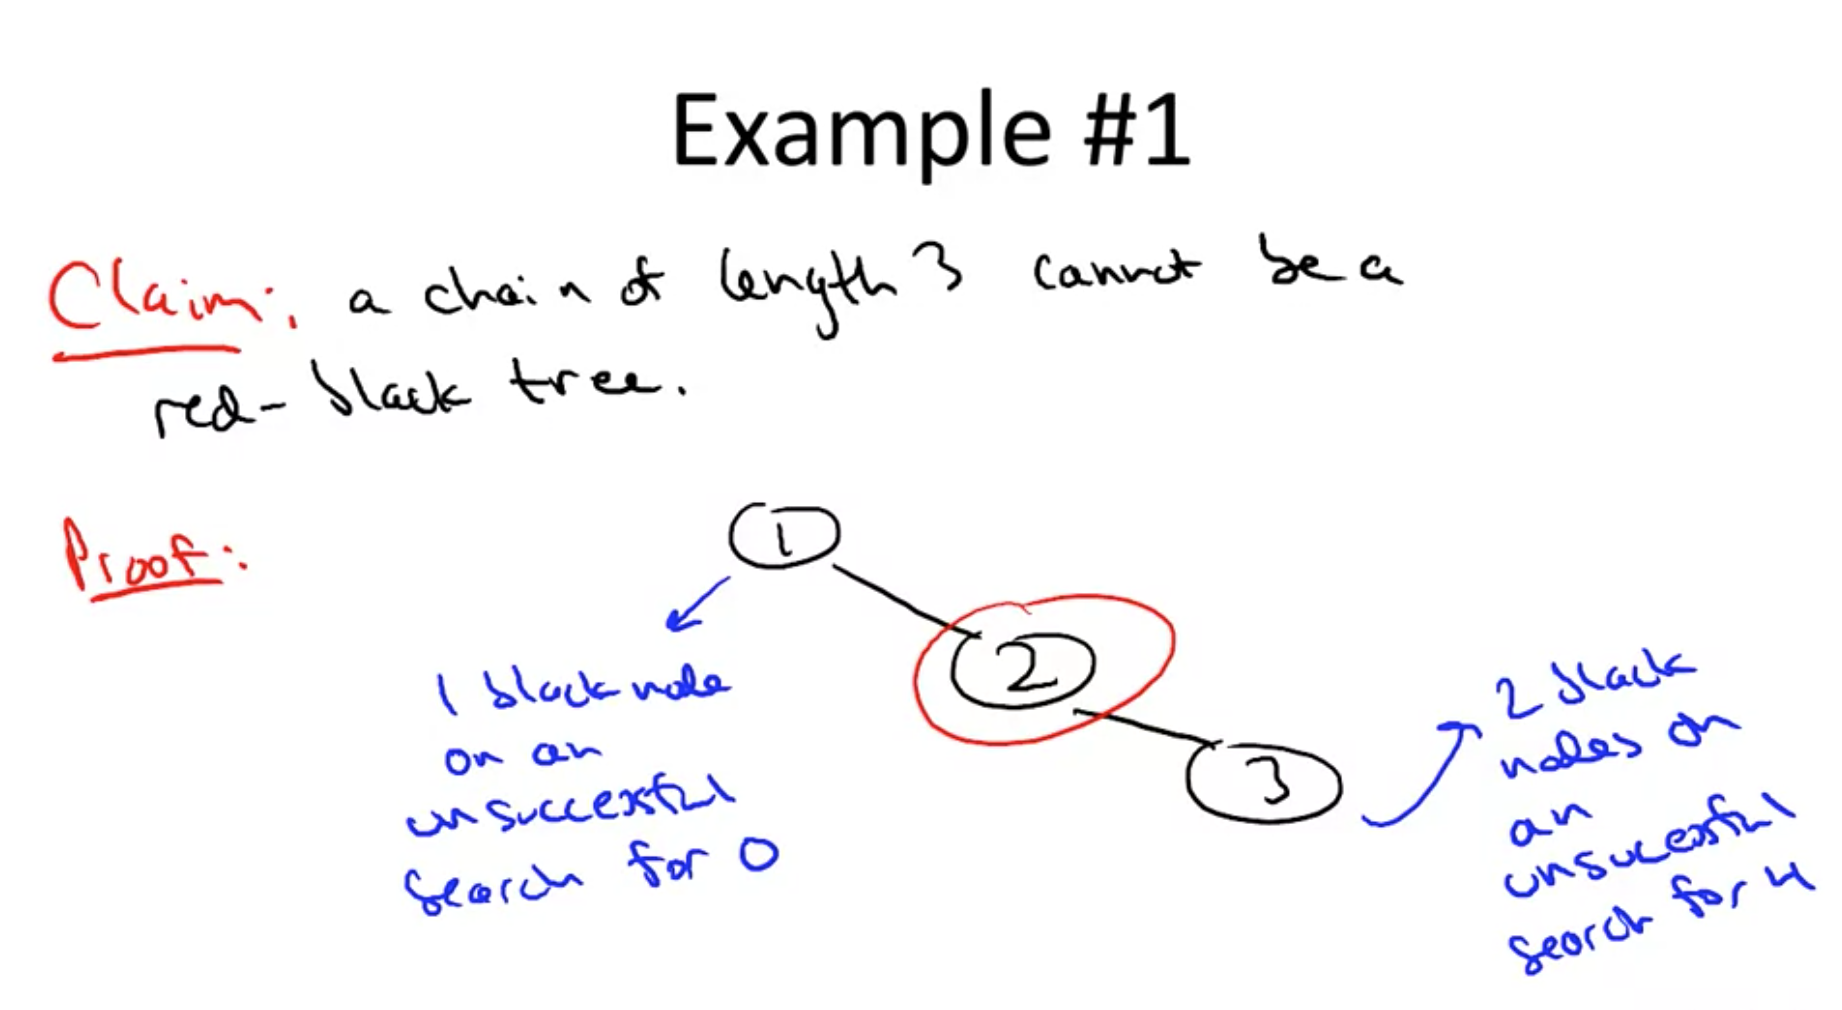 Example #1
Claim: a chain of length 3 cannot be a
red-black tree.
Proof:
1
2
3
1 black node
on an
unsuccessful
search for 0
2 black
nodes on
an
unsuccessful
search for 4